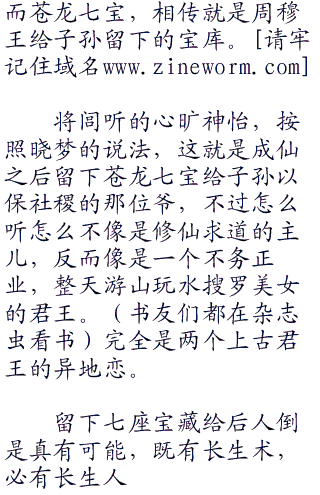 而苍龙七宝，相传就是周穆
王给子孙留下的宝库。[请牢
记住域名www.zineworm.com]
将闾听的心旷神怡，按
照晓梦的说法，这就是成仙
之后留下苍龙七宝给子孙以
保社稷的那位爷，不过怎么
听怎么不像是修仙求道的主
儿，反而像是一个不务正
业，整天游山玩水搜罗美女
的君王。（书友们都在杂志
虫看书）完全是两个上古君
王的异地恋。
留下七座宝藏给后人倒
是真有可能，既有长生术，
必有长生人